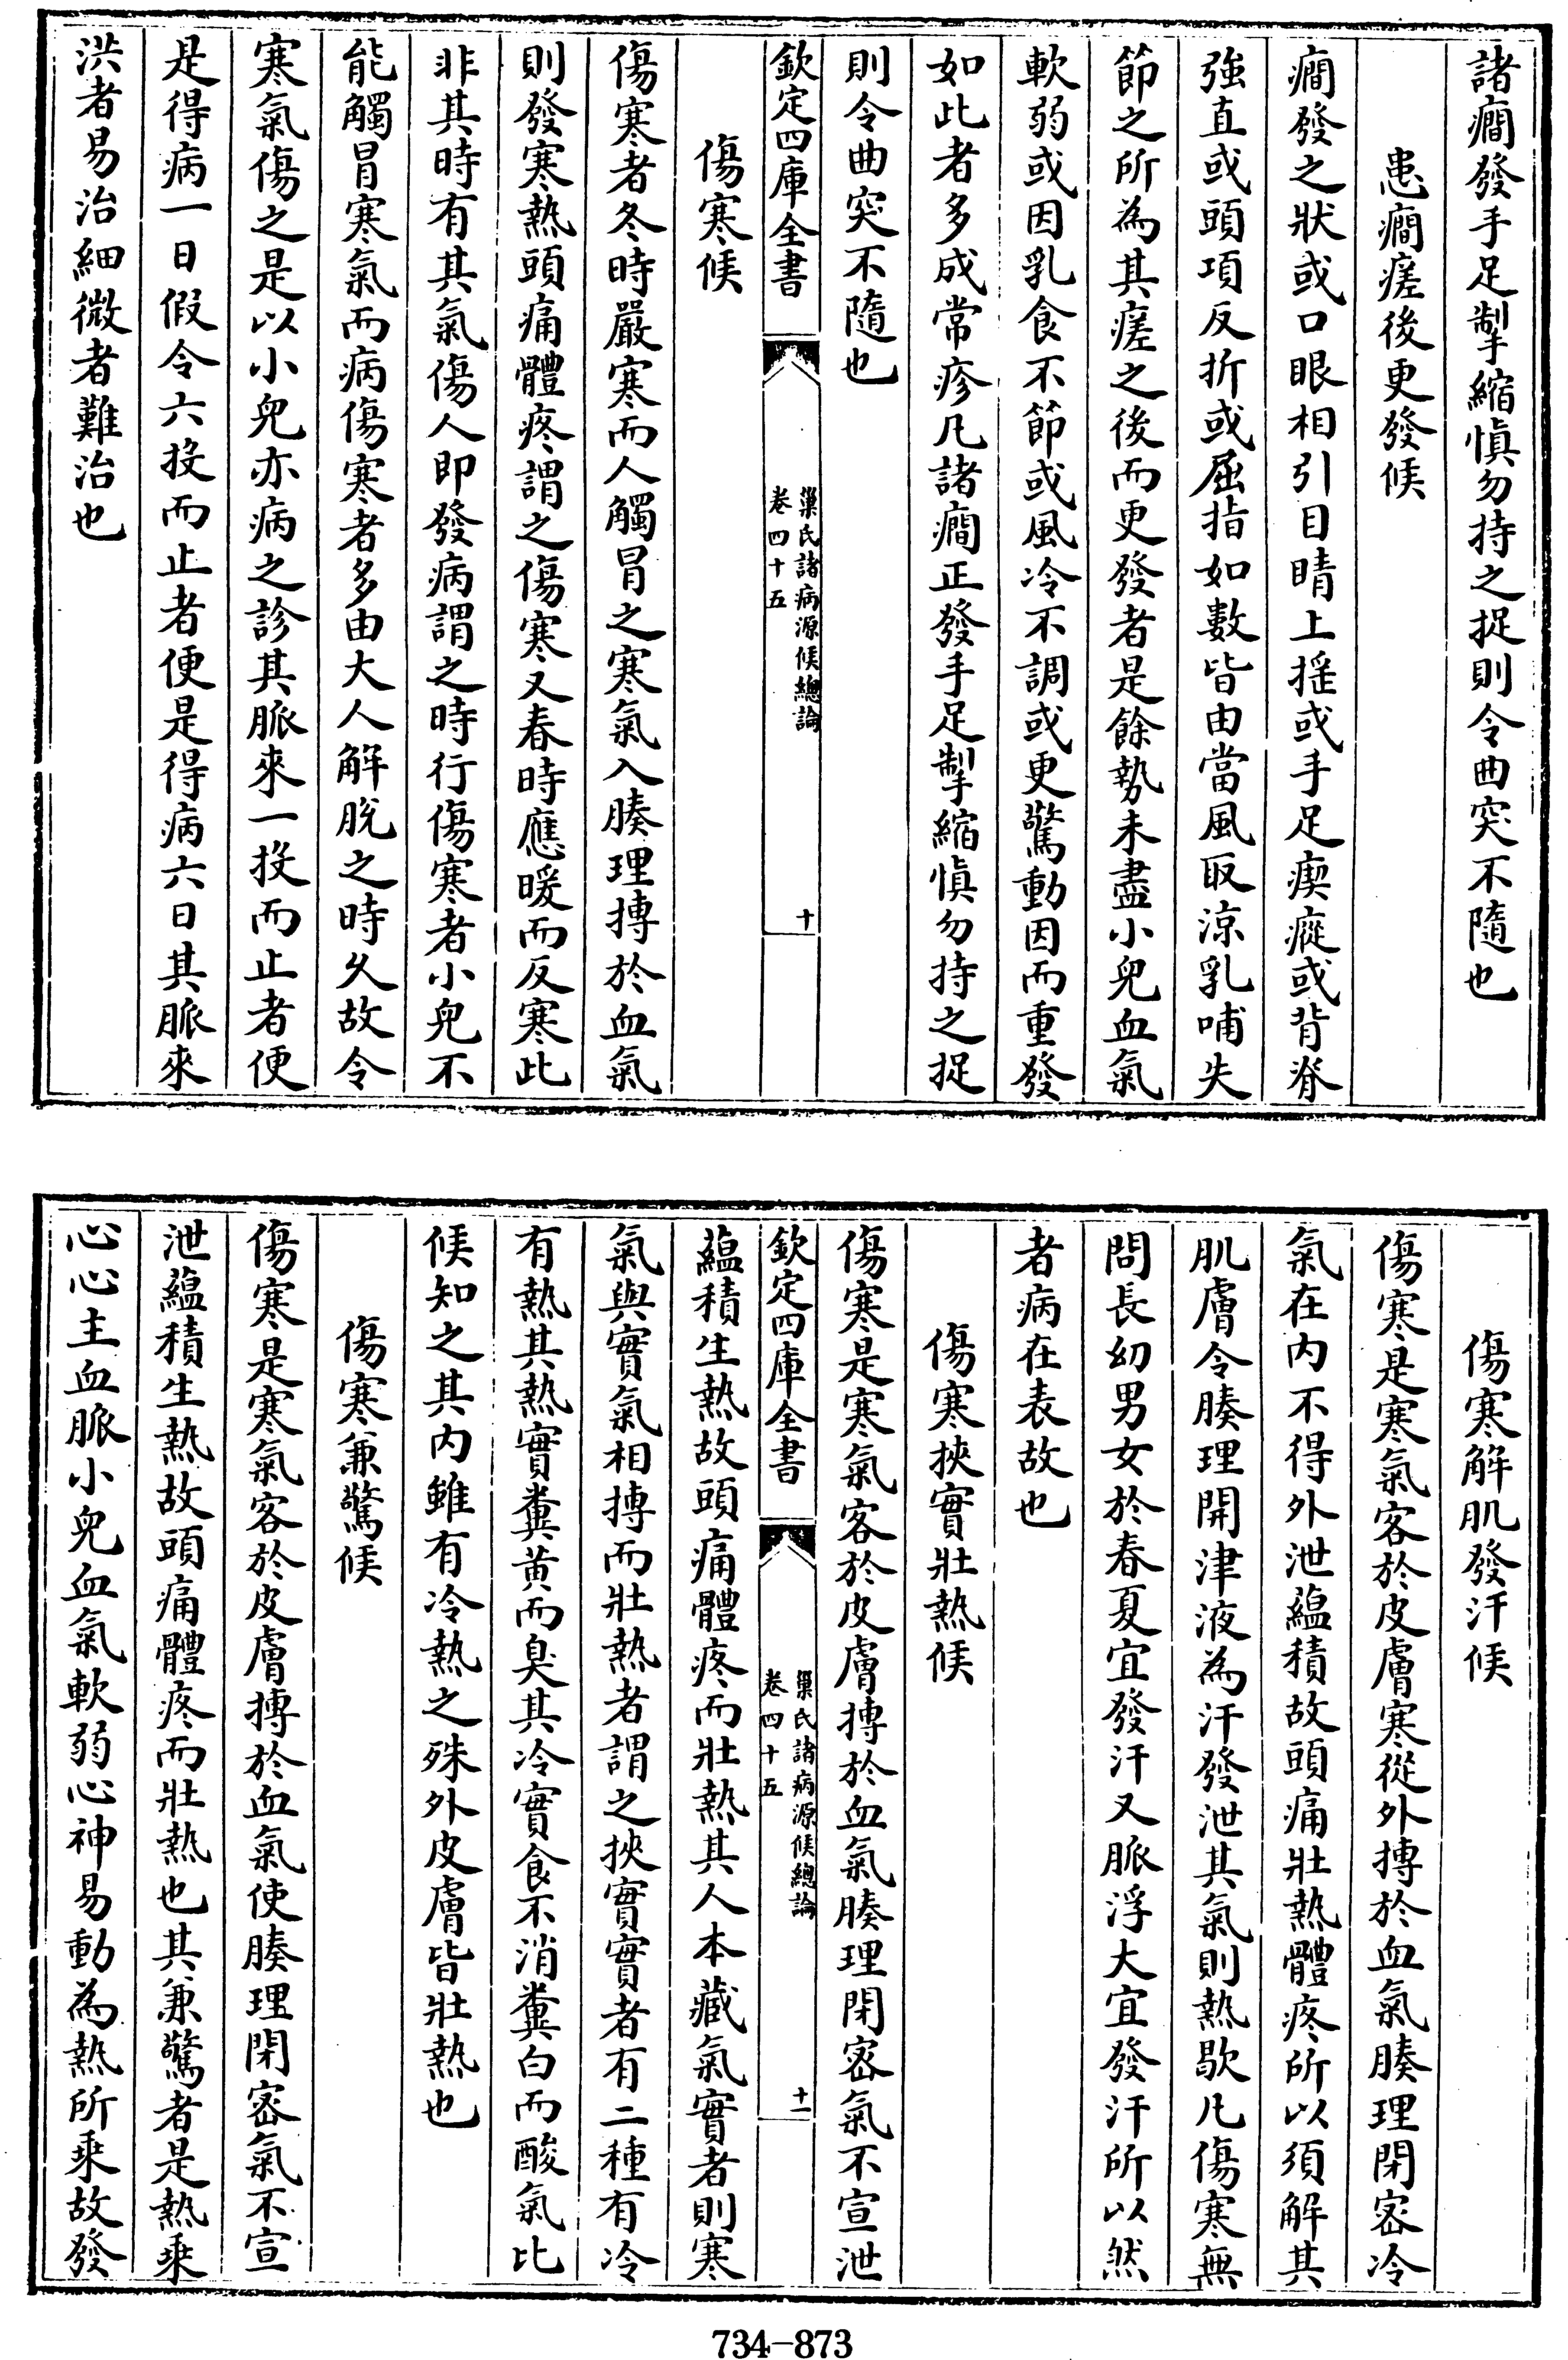 諸癎發手足掣縮慎勿持之捉則令曲突不隨也
患癎瘥後更發候
癎發之狀或口眼相引目睛上摇或手足瘈瘲或背脊
強直或頭項反折或屈指如數皆由當風取涼乳哺失
節之所為其瘥之後而更發者是餘勢未盡小兒血氣
軟弱或因乳食不節或風冷不調或更驚動因而重發
如此者多成常疹凡諸癎正發手足掣縮慎勿持之捉
則令曲突不隨也
欽定四庫全書
巢氏諸病源候總論
卷四十五
十
傷寒候
傷寒者冬時嚴寒而人觸冒之寒氣入腠理搏於血氣
則發寒熱頭痛體疼謂之傷寒又春時應暖而反寒此
非其時有其氣傷人即發病謂之時行傷寒者小兒不
能觸冒寒氣而病傷寒者多由大人解脫之時久故令
寒氣傷之是以小兒亦病之診其脈來一投而止者便
是得病一日假令六投而止者便是得病六日其脈來
洪者易治細微者難治也
傷寒解肌發汗候
傷寒是寒氣客於皮膚寒從外搏於血氣腠理閉密冷
氣在内不得外泄蘊積故頭痛壯熱體疼所以須解其
肌膚令腠理開津液為汗發泄其氣則熱歇凡傷寒無
問長幼男女於春夏宜發汗又脈浮大宜發汗所以然
者病在表故也
傷寒挾實壯熱候
傷寒是寒氣客於皮膚搏於血氣腠理閉密氣不宣泄
欽定四庫全書
巢氏諸病源候總論
卷四十五
十一
蘊積生熱故頭痛體疼而壯熱其人本藏氣實者則寒
氣與實氣相搏而壯熱者謂之挾實實者有二種有冷
有熱其熱實糞黄而臭其冷實食不消糞白而酸氣比
候知之其内雖有冷熱之殊外皮膚皆壯熱也
傷寒兼驚候
傷寒是寒氣客於皮膚搏於血氣使腠理閉密氣不宣
泄蘊積生熱故頭痛體疼而壯熱也其兼驚者是熱乘
心心主血脈小兒血氣軟弱心神易動為熱所乘故發
734-873